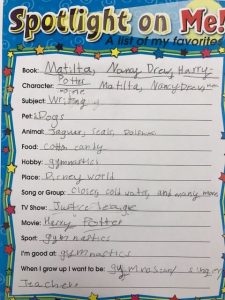 Spotlight on Me!
A list of my favorite
Book: Matilta, Nancy Drew, Harry
Potter
Character: Matilta, Nancy Drew,
Subject: Writing
Pet: Dogs
Animal: Jaguar, Seals,
Food: cotton candy
Hobby: gymnastics
Place: Disney world
Song or Group: Closer, cold water, and many more
TV Show: Justice
Movie: Harry Potter
Sport: gymnastics
I'm good at: gymnastics
When I grow up I want to be: singer
Teacher